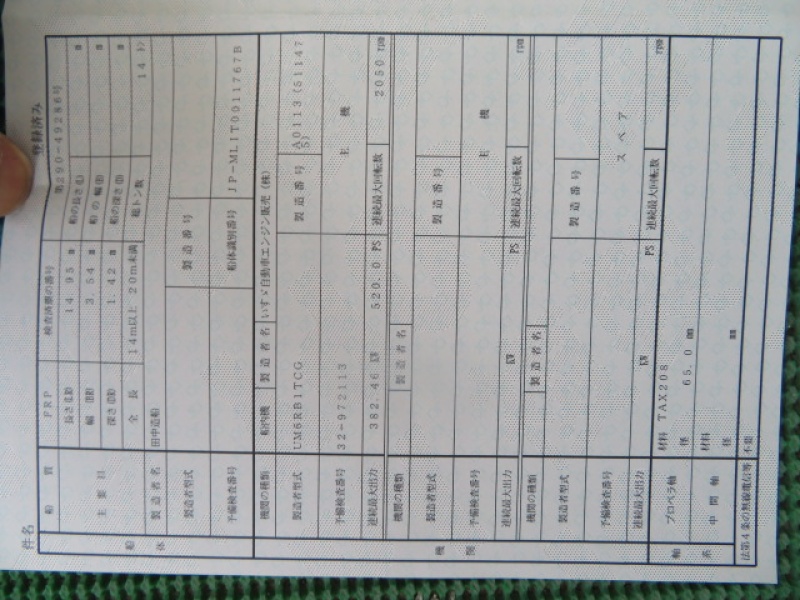 件名
登録済み
船質 FRP 検査済票の番号 第290-49286号
船体
主要目
長さ(Lk) 14.95 m 船の長さ(L) m
幅(Bk) 3.54 m 船の幅(B) m
深さ(Dk) 1.42 m 船の深さ(D) m
全長 14m以上 20m未満 総トン数 14 トン
製造者名 田中造船
製造者型式 製造番号
予備検査番号 船体識別番号 JP-ML1T0011767B
機関
機関の種類 船内機 製造者名 いすゞ自動車エンジン販売(株)
製造者型式 UM6RB1TCG 製造番号 A0113(511475)
予備検査番号 32-972113 主機
連続最大出力 382.46 kW 520.0 PS 連続最大回転数 2050 rpm
機関の種類 製造者名
製造者型式 製造番号
予備検査番号 主機
連続最大出力 kW PS 連続最大回転数 rpm
機関の種類 製造者名
製造者型式 製造番号
予備検査番号 スペア
連続最大出力 kW PS 連続最大回転数 rpm
軸系
プロペラ軸 材料 TAX208
径 65.0 mm
中間軸 材料
径 mm
法第4条の無線電信等 不要